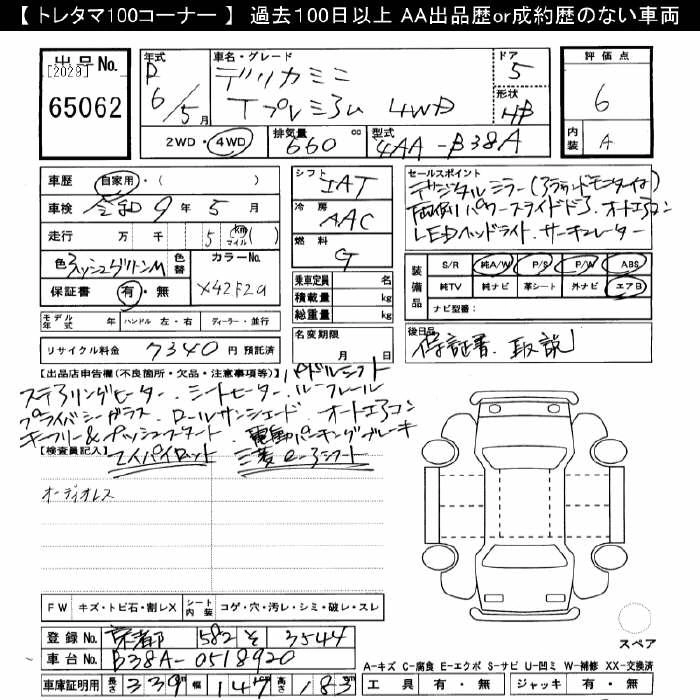 【 トレタマ100コーナー 】 過去100日以上 AA出品歴or成約歴のない車両
出品No.
[2029]
65062
年式
R
6/5月
車名・グレード
デリカミニ
Tプレミアム 4WD
ドア
5
形状
HB
評価点
6
内装
A
2WD・4WD
排気量
660 cc
型式
4AA-B38A
車歴 自家用・( )
車検 令和 9年 5月
走行 万 千 5 km マイル ( )
色 アッシュグリーンM 色替
カラーNo. X42F29
保証書 有・無
シフト
IAT
冷房
AAC
燃料
G
乗車定員 名
積載量 kg
総重量 kg
セールスポイント
デジタルミラー(アラウンドモニター付)
両側パワースライドドア、オートエアコン
LEDヘッドライト、サーキュレーター
装備品
S/R 純A/W P/S P/W ABS
純TV 純ナビ 革シート 外ナビ エアB
ナビ型番:
モデル年式 年 ハンドル 左・右 ディーラー・並行
リサイクル料金 7340 円 預託済
名変期限
月 日
後日品
保証書、取説
【出品店申告欄(不良箇所・欠品・注意事項等)】 パドルシフト
ステアリングヒーター、シートヒーター、ルーフレール
プライバシーガラス、ロールサンシェード、オートエアコン
キーフリー&プッシュスタート、電動パーキングブレーキ
【検査員記入】 マイパイロット 三菱e-アシスト
オーディオレス
FW キズ・トビ石・割レX シート内装 コゲ・穴・汚レ・シミ・破レ・スレ
登録No. 京都 582 そ 3544
車台No. B38A-0518920
車庫証明用 長さ 339 幅 147 高さ 183
スペア
A-キズ C-腐食 E-エクボ S-サビ U-凹ミ W-補修 XX-交換済
工具 有・無 ジャッキ 有・無